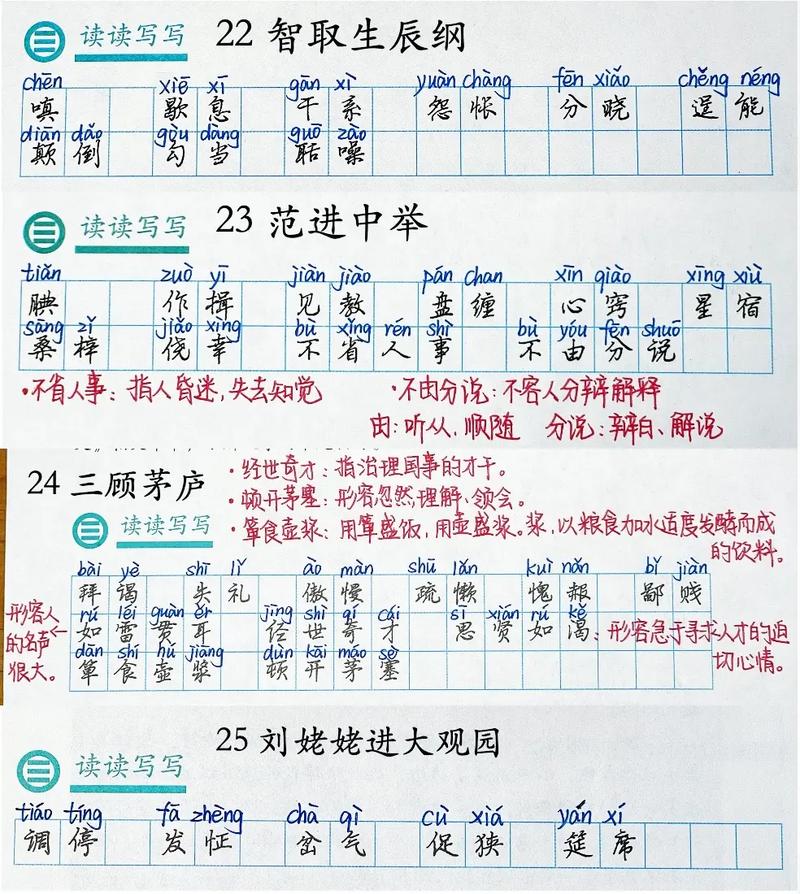 三 读读写写 22 智取生辰纲
chēn xiē xī gān xì yuàn chàng fēn xiǎo chěng néng
嗔 歇息 干系 怨怅 分晓 逞能
diān dǎo gòu dàng guō zào
颠倒 勾当 聒噪
三 读读写写 23 范进中举
tiǎn zuò yī jiàn jiào pán chan xīn qiào xīng xiù
腆 作揖 见教 盘缠 心窍 星宿
sāng zǐ jiǎo xìng bù xǐng rén shì bù yóu fēn shuō
桑梓 侥幸 不省人事 不由分说
·不省人事：指人昏迷，失去知觉 ·不由分说：不容人分辩解释
由：听从、顺随 分说：辩白、解说
24 三顾茅庐
·经世奇才：指治理国事的才干。
·顿开茅塞：形容忽然理解、领会。
·箪食壶浆：用箪盛饭，用壶盛浆。浆，以粮食加水适度发酵而成
的饮料。
三 读读写写
bài yè shī lǐ ào màn shū lǎn kuì nǎn bǐ jiàn
拜谒 失礼 傲慢 疏懒 愧赧 鄙贱
rú léi guàn ěr jīng shì qí cái sī xián rú kě
如雷贯耳 经世奇才 思贤如渴：形容急于寻求人才的迫
切心情。
形容人
的名声
很大。
dān shí hú jiāng dùn kāi máo sè
箪食壶浆 顿开茅塞
25 刘姥姥进大观园
三 读读写写
tiáo tíng fā zhèng chà qì cù xiá yán xí
调停 发怔 岔气 促狭 筵席